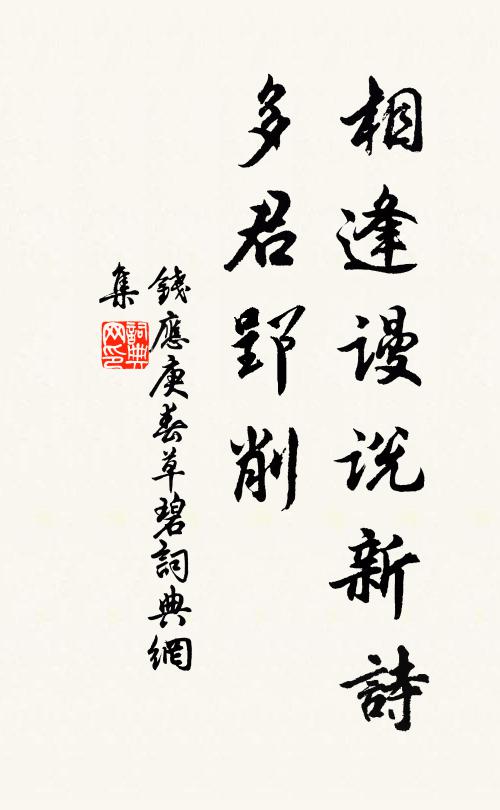 相逢谩说新詩
多君郢削
錢應庚春草碧詞典網
集
詞典網印